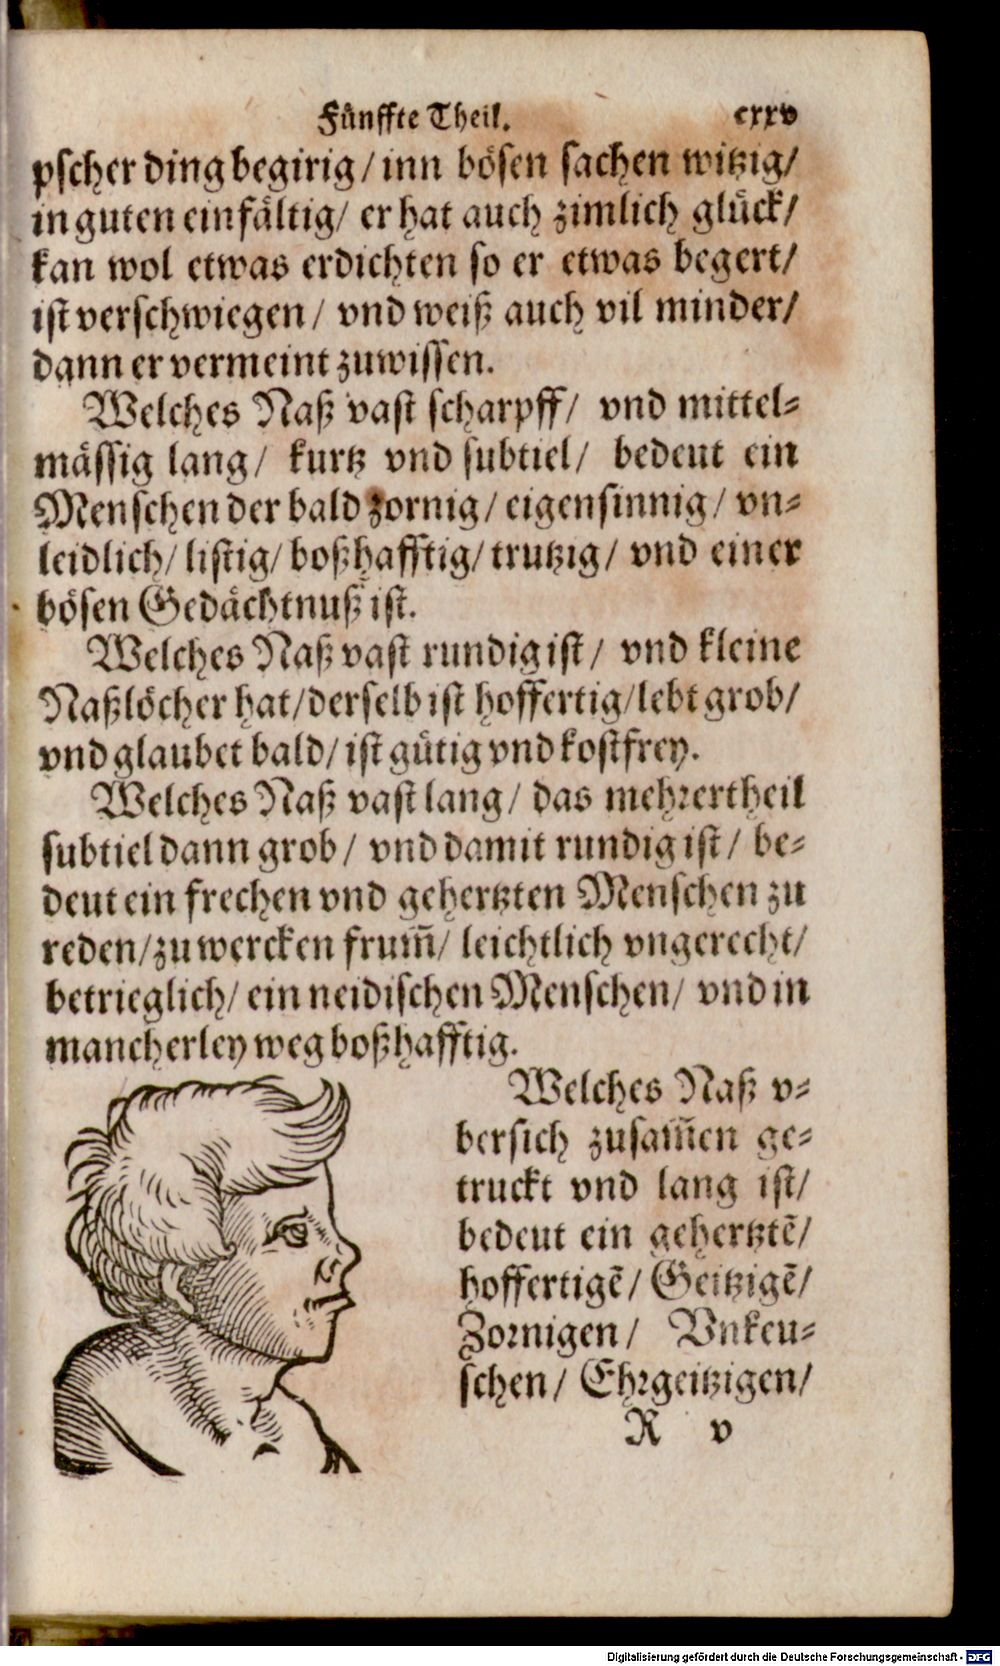 Fünffte Theil. cxxv
pscher ding begirig/ inn bösen sachen witzig/
in guten einfältig/ er hat auch zimlich glück/
kan wol etwas erdichten so er etwas begert/
ist verschwiegen/ vnd weiß auch vil minder/
dann er vermeint zuwissen.
Welches Naß vast scharpff/ vnd mittel-
mässig lang/ kurtz vnd subtiel/ bedeut ein
Menschen der bald zornig/ eigensinnig/ vn-
leidlich/ listig/ boßhafftig/ trutzig/ vnd einer
bösen Gedächtnuß ist.
Welches Naß vast rundig ist/ vnd kleine
Naßlöcher hat/ derselb ist hoffertig/ lebt grob/
vnd glaubet bald/ ist gütig vnd kostfrey.
Welches Naß vast lang/ das mehrertheil
subtiel dann grob/ vnd damit rundig ist/ be-
deut ein frechen vnd gehertzten Menschen zu
reden/ zu wercken frum̃/ leichtlich vngerecht/
betrieglich/ ein neidischen Menschen/ vnd in
mancherley weg boßhafftig.
Welches Naß v-
bersich zusam̃en ge-
truckt vnd lang ist/
bedeut ein gehertztẽ/
hoffertigẽ/ Geitzigẽ/
Zornigen/ Vnkeu-
schen/ Ehrgeitzigen/
R v
Digitalisierung gefördert durch die Deutsche Forschungsgemeinschaft - DFG